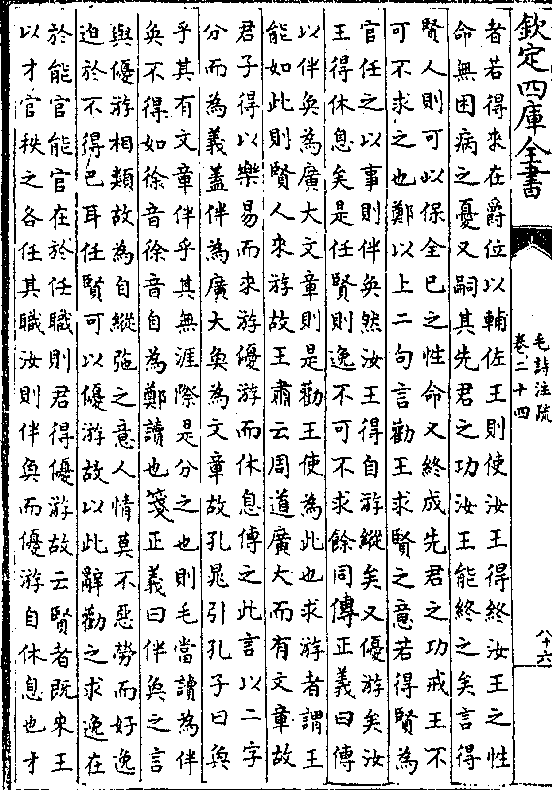 欽定四庫全書
毛詩注疏
卷二十四
六十八
者若得來在爵位以輔佐王則使汝王得終汝王之性
命無困病之憂又嗣其先君之功汝王能終之矣言得
賢人則可以保全已之性命又終成先君之功戒王不
可不求之也鄭以上二句言勸王求賢之意若得賢為
官任之以事則伴奐然汝王得自游縱矣又優游矣汝
王得休息矣是任賢則逸不可不求餘同傳正義曰傳
以伴奐為廣大文章則是勸王使為此也求游者謂王
能如此則賢人來游故王肅云周道廣大而有文章故
君子得以樂易而來游優游而休息傳之此言以二字
分而為義蓋伴為廣大奐為文章故孔晁引孔子曰奐
乎其有文章伴乎其無涯際是分之也則毛當讀為伴
奐不得如徐音徐音自為鄭讀也箋正義曰伴奐之言
與優游相類故為自縱弛之意人情莫不惡勞而好逸
迫於不得已耳任賢可以優游故以此辭勸之求逸在
於能官能官在於任職則君得優游故云賢者既來王
以才官秩之各任其職汝則伴奐而優游自休息也才